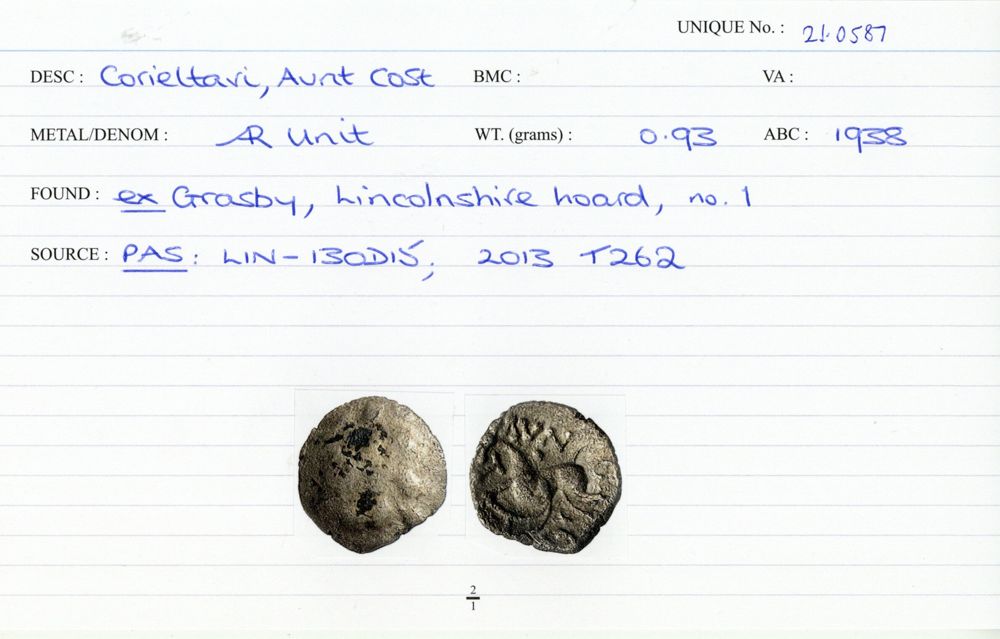 UNIQUE No. : 21.0587
DESC : Corieltavi, Aunt Cost BMC : VA :
METAL/DENOM : AR Unit WT. (grams) : 0.93 ABC : 1938
FOUND : ex Grasby, Lincolnshire hoard, no. 1
SOURCE : PAS: LIN-130D15; 2013 T262
2
1